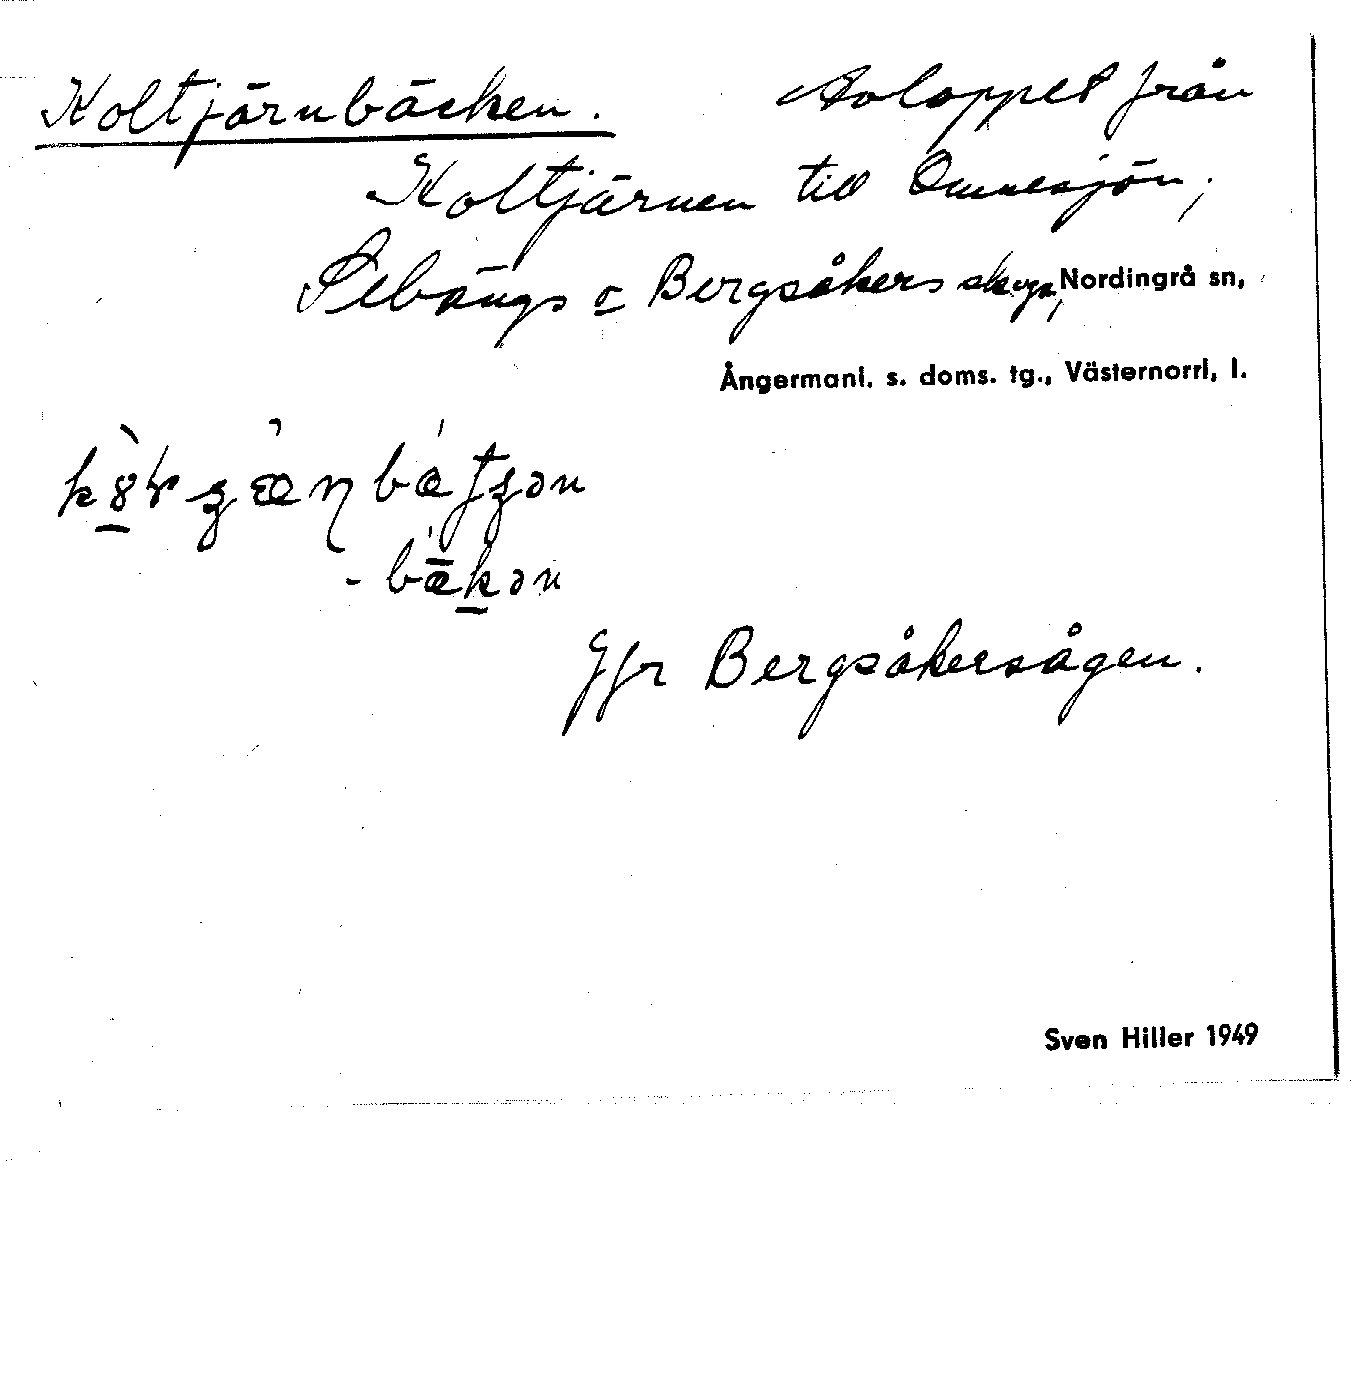 Koltjärnbäcken. Avloppet från
Koltjärnen till Omnesjön,
Sebångs o Bergsåkers skogar, Nordingrå sn,
Ångermanl. s. doms. tg., Västernorrl. l.
Jfr Bergsåkersågen.
Sven Hiller 1949